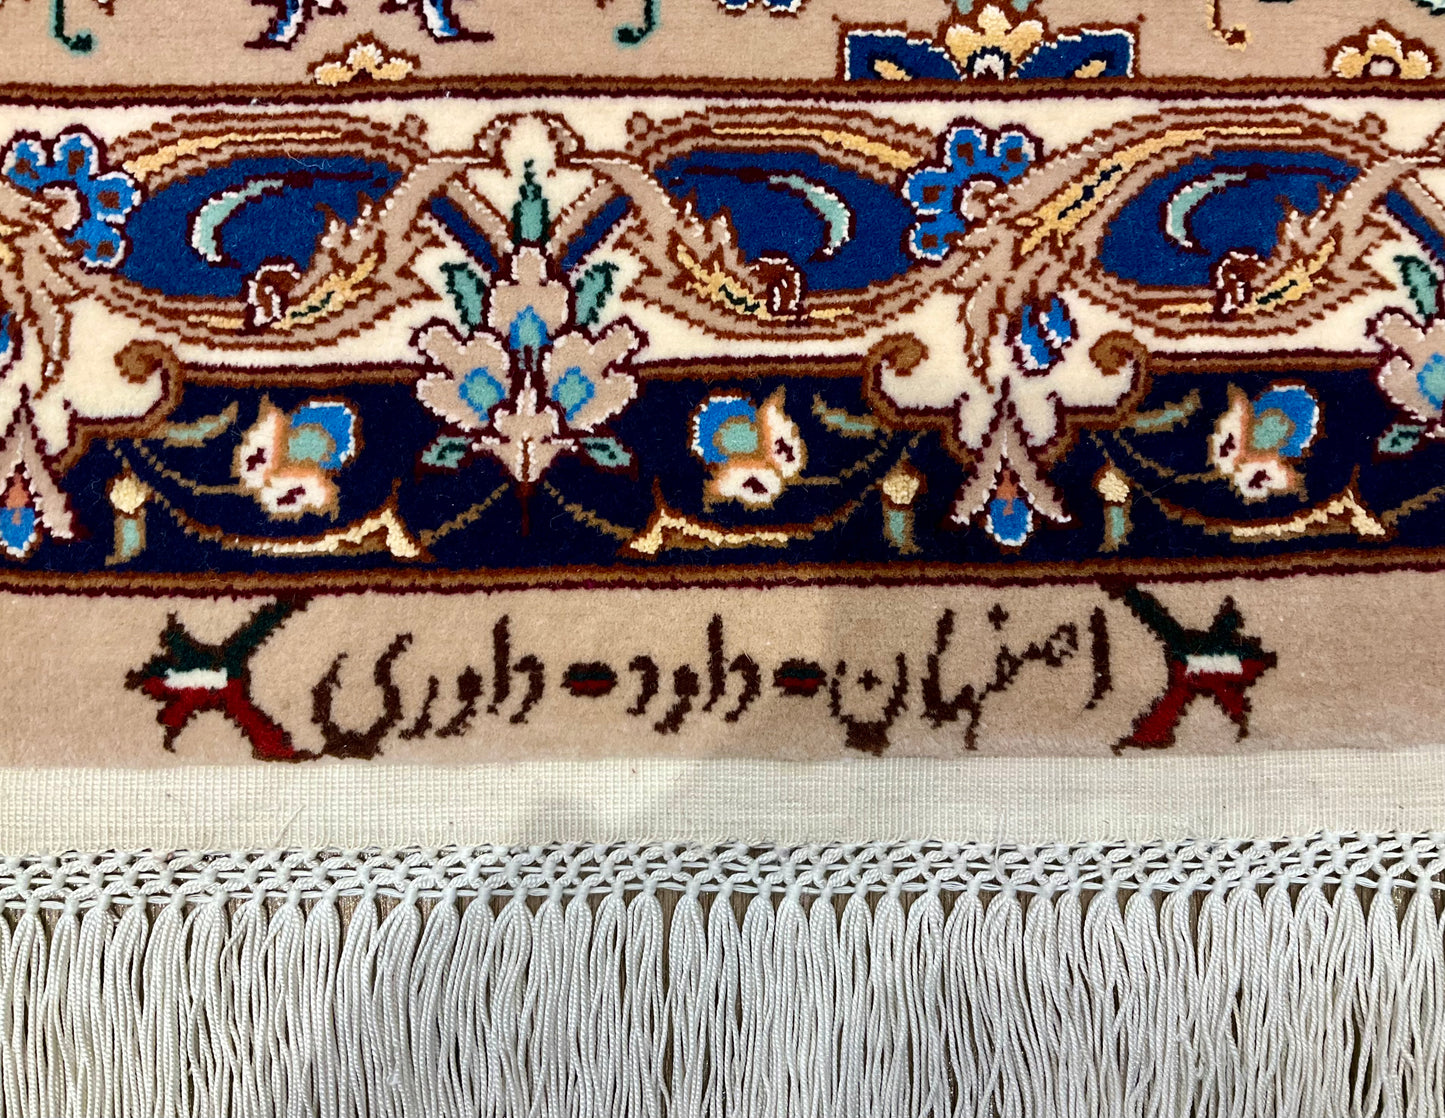 اصفهان - داود - داوری